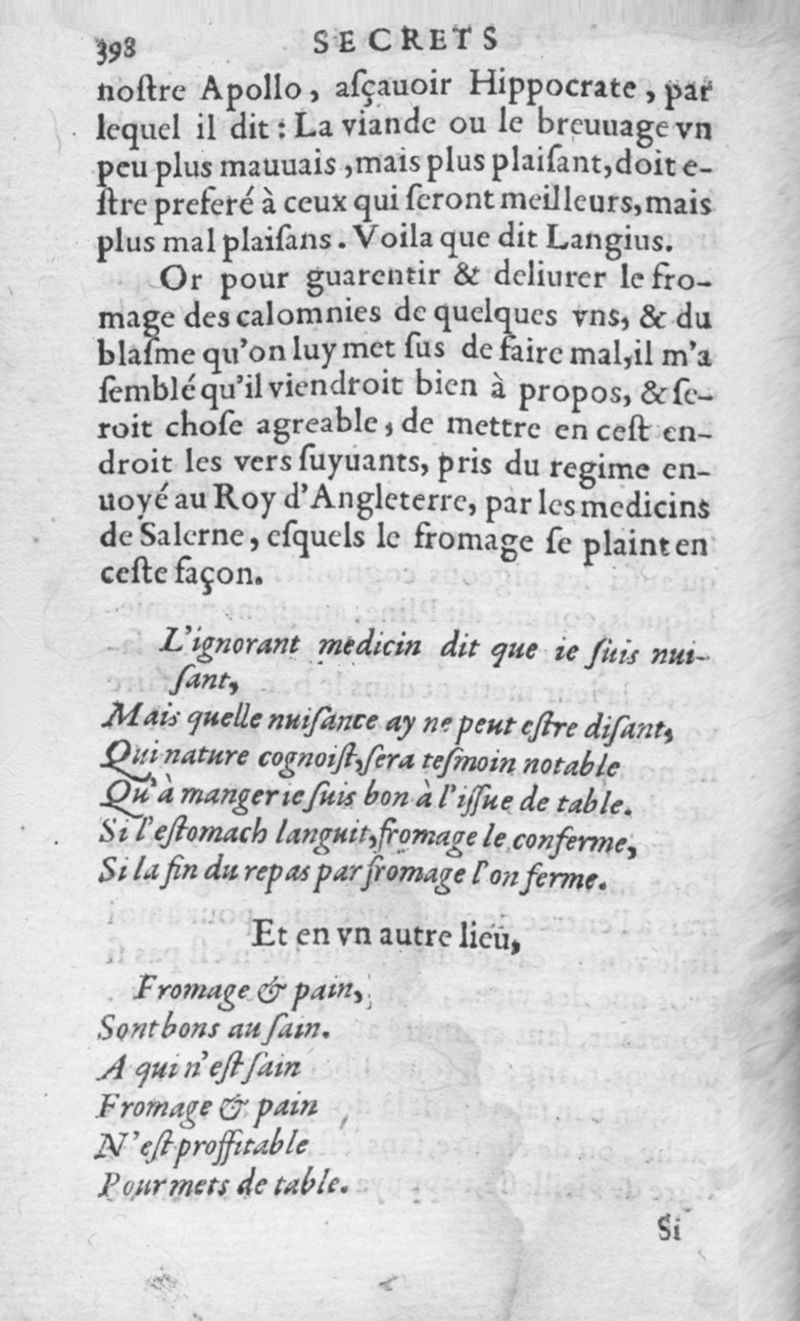 398 SECRETS
noſtre Apollo, aſçauoir Hippocrate, par
lequel il dit : La viande ou le breuuage vn
peu plus mauuais, mais plus plaiſant, doit e-
ſtre preferé à ceux qui ſeront meilleurs, mais
plus mal plaiſans. Voila que dit Langius.
Or pour guarentir & deliurer le fro-
mage des calomnies de quelques vns, & du
blaſme qu'on luy met ſus de faire mal, il m'a
ſemblé qu'il viendroit bien à propos, & ſe-
roit choſe agreable, de mettre en ceſt en-
droit les vers ſuyuants, pris du regime en-
uoyé au Roy d'Angleterre, par les medicins
de Salerne, eſquels le fromage ſe plaint en
ceſte façon.
L'ignorant medicin dit que ie ſuis nui-
ſant,
Mais quelle nuiſance ay ne peut eſtre diſant,
Qui nature cognoiſt, ſera teſmoin notable
Qu'à manger ie ſuis bon à l'iſſue de table.
Si l'eſtomach languit, fromage le conferme,
Si la fin du repas par fromage l'on ferme.
Et en vn autre lieu,
Fromage & pain,
Sont bons au ſain.
A qui n'eſt ſain
Fromage & pain
N'eſt proffitable
Pour mets de table.
Si